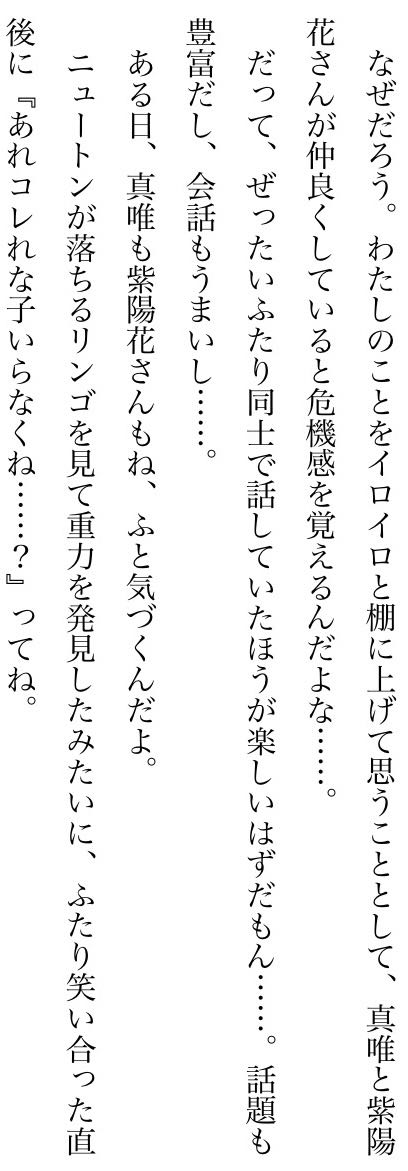 なぜだろう。わたしのことをイロイロと棚に上げて思うこととして、真唯と紫陽
花さんが仲良くしていると危機感を覚えるんだよな……。
だって、ぜったいふたり同士で話していたほうが楽しいはずだもん……。話題も
豊富だし、会話もうまいし……。
ある日、真唯も紫陽花さんもね、ふと気づくんだよ。
ニュートンが落ちるリンゴを見て重力を発見したみたいに、ふたり笑い合った直
後に『あれコレれな子いらなくね……？』ってね。